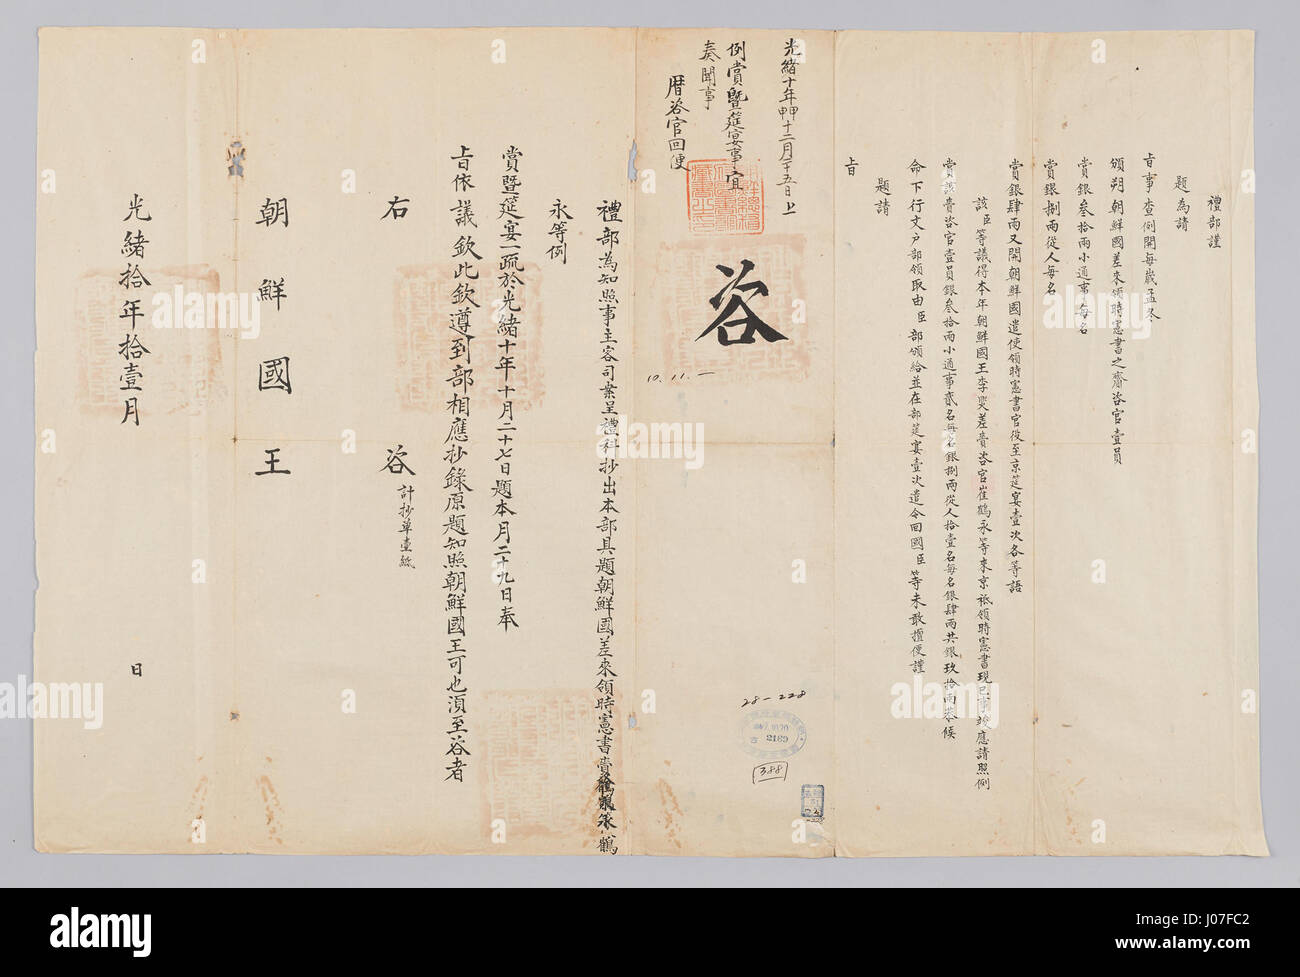 禮部謹
題為請
旨事查例開每歲孟冬
頒朔朝鮮國差來領時憲書之齎咨官壹員
賞銀叁拾兩小通事每名
賞銀捌兩從人每名
賞銀肆兩又開朝鮮國遣使領時憲書官役至京筵宴壹次各等語
該臣等議得本年朝鮮國王李㷩差賫咨官崔鶴永等來京祗領時憲書現已事竣應請照例
賞該賫咨官壹員銀叁拾兩小通事貳名每名銀捌兩從人拾壹名每名銀肆兩共銀玖拾兩恭候
命下行文戶部領取由臣部頒給並在部筵宴壹次遣令回國臣等未敢擅便謹
題請
旨
光緒十年甲申十二月二十五日上
例賞暨筵宴事宜
奏聞事
曆咨官回便
咨
10. 11. 一
28-228
2169
388
禮部為知照事主客司案呈禮科抄出本部具題朝鮮國差來領時憲書賫咨官崔鶴
永等例
賞暨筵宴一疏於光緒十年十月二十七日題本月二十九日奉
旨依議欽此欽遵到部相應抄錄原題知照朝鮮國王可也須至咨者
右咨
計抄單壹紙
朝鮮國王
光緒拾年拾壹月 日
alamy
alamy stock photo
J07FC2
www.alamy.com